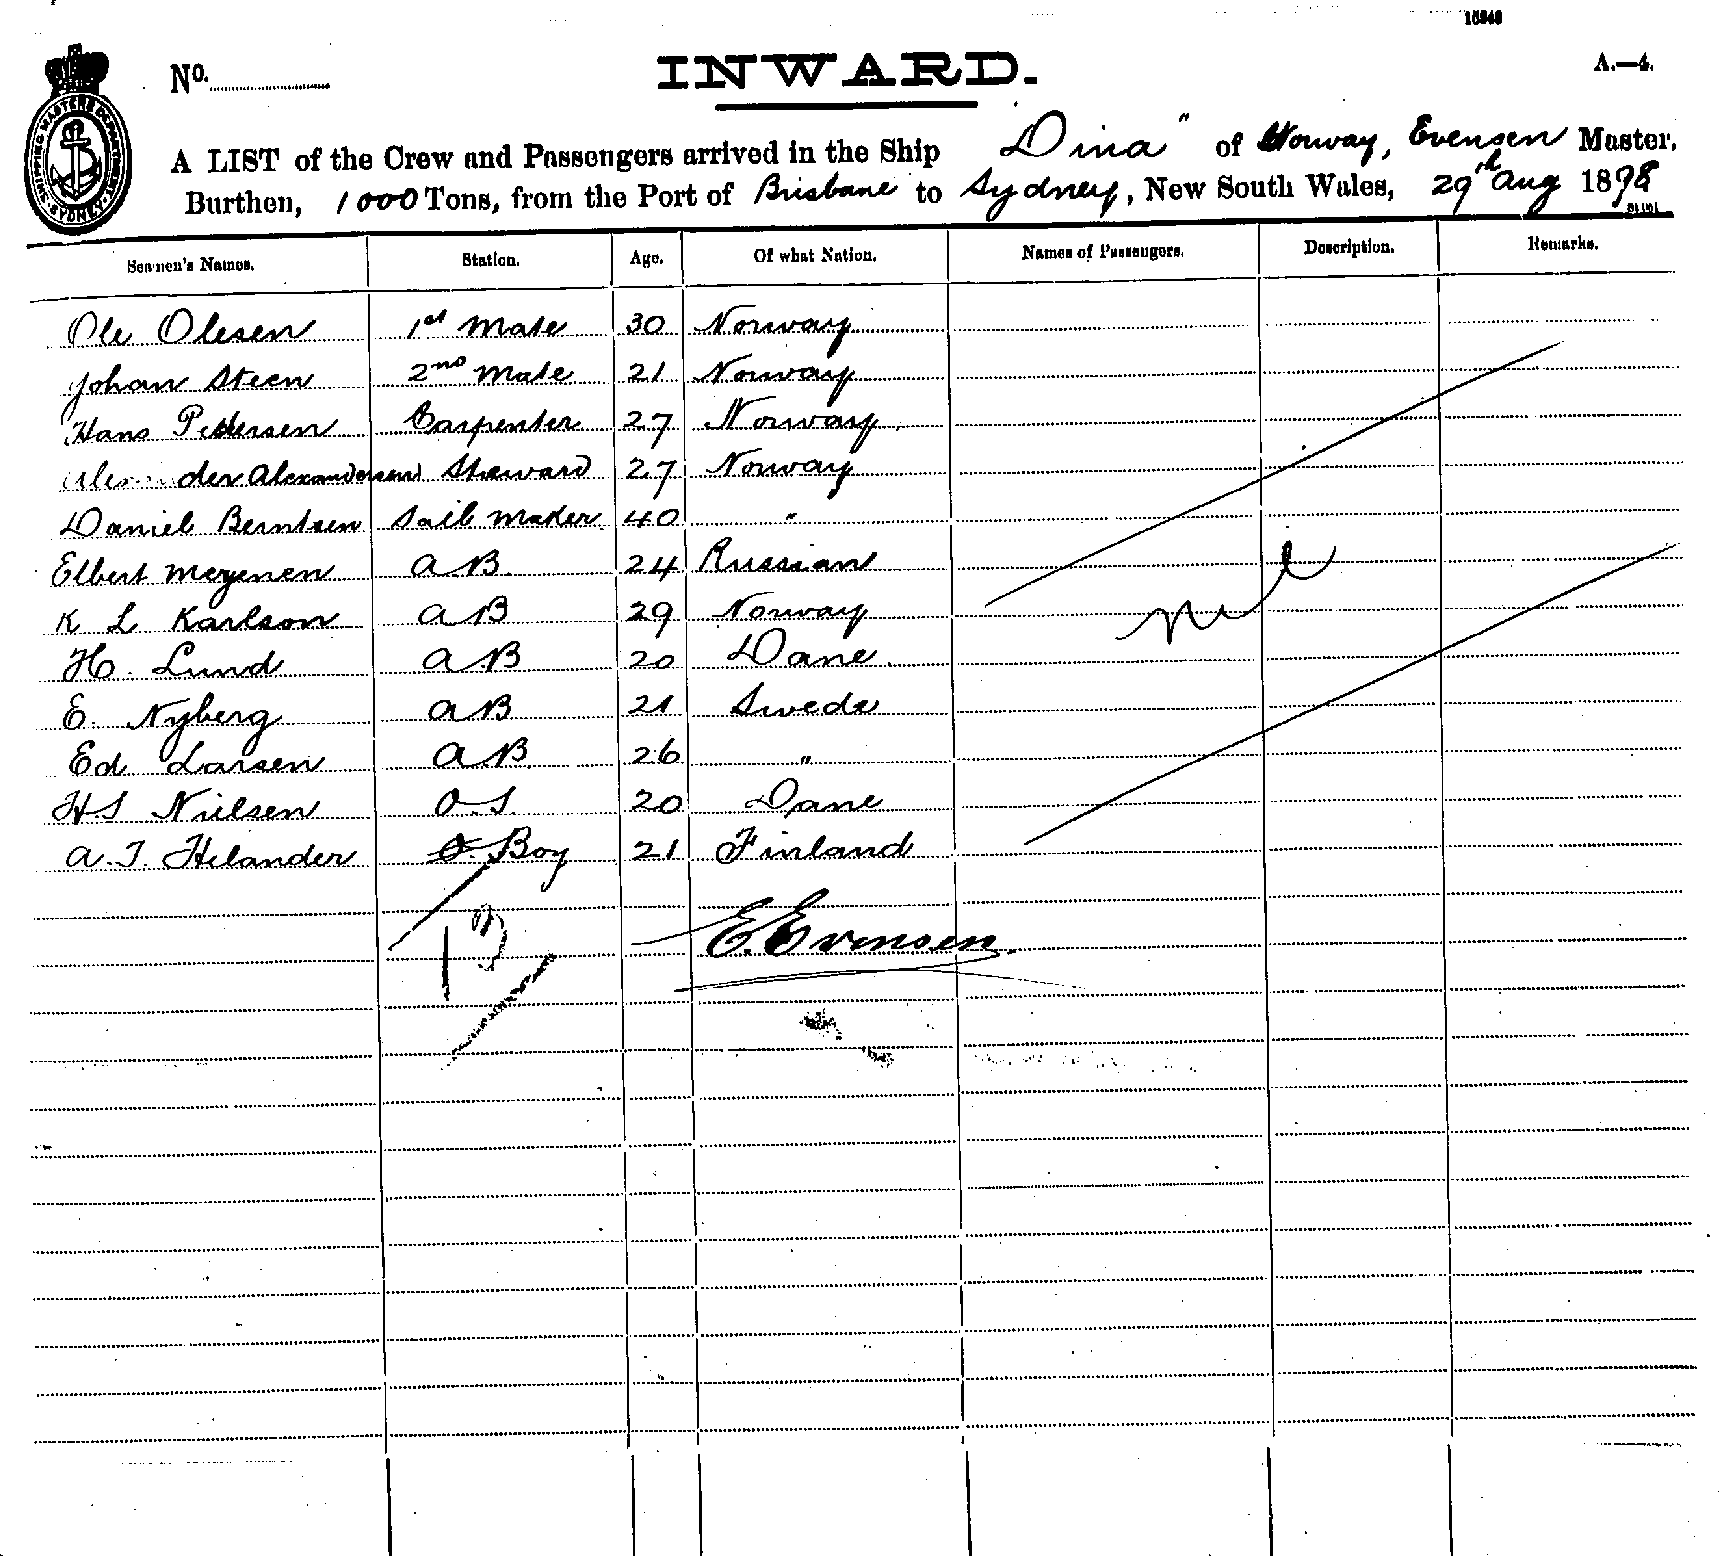 16843
INWARD.
A.—4.
No.
SHIPPING MASTERS DEPARTMENT SYDNEY
A LIST of the Crew and Passengers arrived in the Ship "Dina" of Norway, Evensen Master,
Burthen, 1000 Tons, from the Port of Brisbane to Sydney, New South Wales, 29th Aug 1898
Seamen's Names. Station. Age. Of what Nation. Names of Passengers. Description. Remarks.
Ole Olesen 1st Mate 30 Norway
Johan Steen 2nd Mate 21 Norway
Hans Pettersen Carpenter 27 Norway
Alexander Alexandersen Steward 27 Norway
Daniel Berntsen Sail Maker 40 "
Elbert Meyenen A.B. 24 Russian
K L Karlson AB 29 Norway
H. Lund AB 20 Dane
nil
E. Nyberg AB 21 Swede
Ed Larsen AB 26 "
HS Nielsen O.S. 20 Dane
A. T. Helander O. Boy 21 Finland
13
E. Evensen